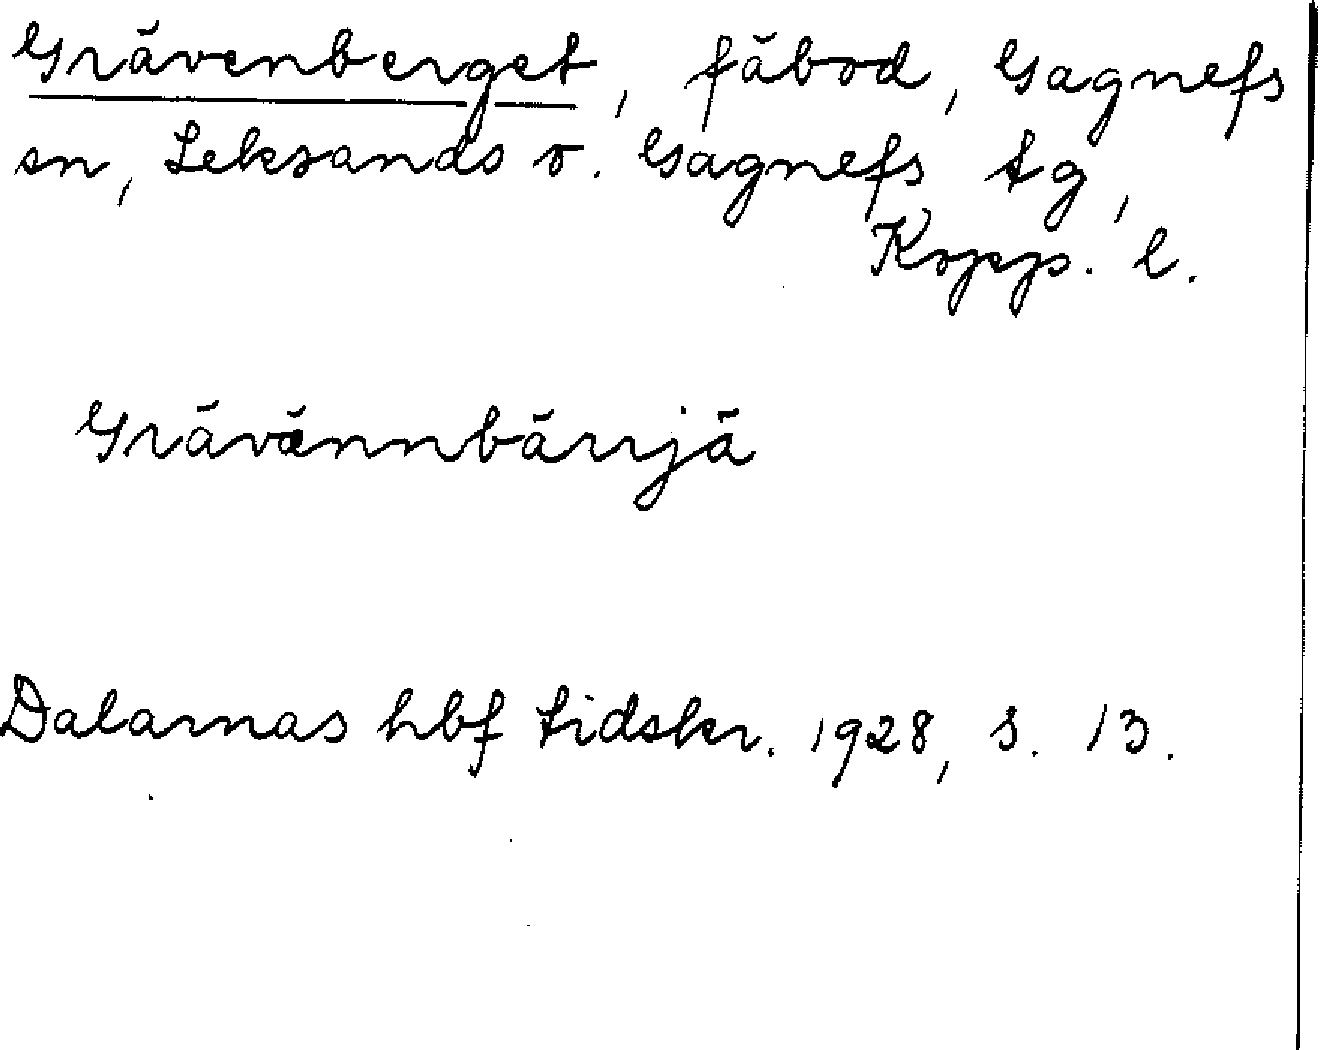 Grävenberget, fäbod, Gagnefs
sn, Leksands o. Gagnefs tg,
Kopp. l.
Grävännbärrjä
Dalarnas hbf tidskr. 1928, s. 13.